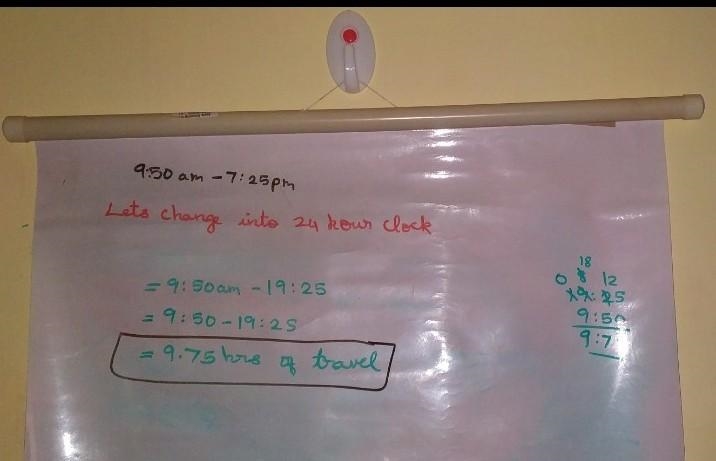 9:50 am - 7:25pm
Lets change into 24 hour clock
= 9:50am - 19:25
= 9:50 - 19:25
= 9.75 hrs of travel
18
0 8 12
19:25
9:50
9:7